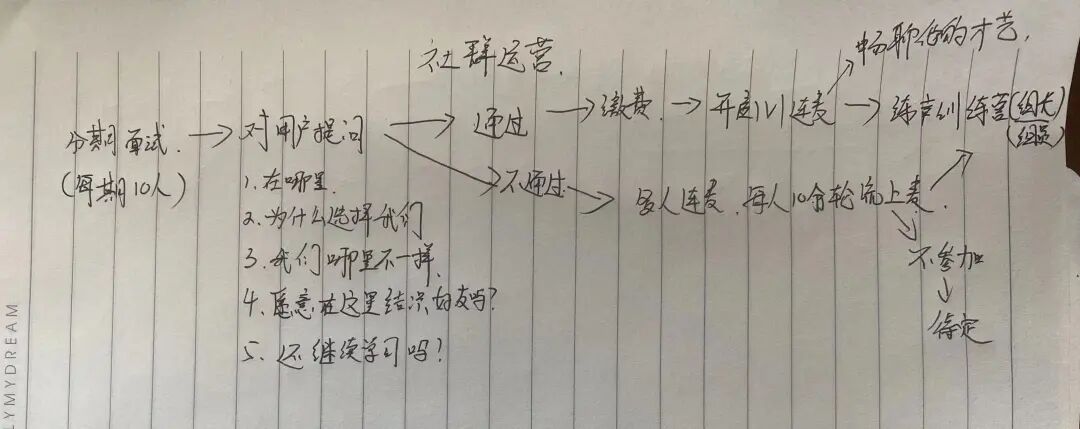 社群运营.
畅聊他的才艺.
分期面试. → 对用户提问 → 通过 → 缴费. → 开直1V1连麦 → 练声训练营(组长/组员)
(每期10人)
→ 不通过 → 多人连麦.每人10分轮流上麦.
1.在哪里.
2.为什么选择我们
3.我们哪里不一样.
4.愿意在这里结识好友吗?
5.还继续学习吗?
不参加
↓
待定
LYMYDREAM